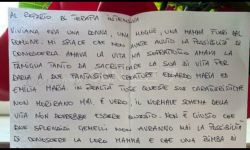 AL REPARTO DI TERAPIA INTENSIVA
VIVIANA ERA UNA DONNA, UNA MOGLIE, UNA MAMMA FUORI DAL
COMUNE. MI SPIACE CHE NON AVRETE AVUTO LA POSSIBILITÀ DI
CONOSCERLA. AMAVA LA VITA MA SOPRATTUTTO AMAVA LA
FAMIGLIA TANTO DA SACRIFICARE LA SUA DI VITA PER
DARLA A DUE FANTASTICHE CREATURE: EDOARDO MARIA ED
EMILIA MARIA. IN REALTÀ TUTTE QUESTE SUE CARATTERISTICHE
NON MORIRANNO MAI. È VERO, IL NORMALE SCHEMA DELLA
VITA NON DOVREBBE ESSERE QUESTO. NON È GIUSTO CHE
DUE SPLENDIDI GEMELLI NON AVRANNO MAI LA POSSIBILITÀ
DI CONOSCERE LA LORO MAMMA E CHE UNA BIMBA DI